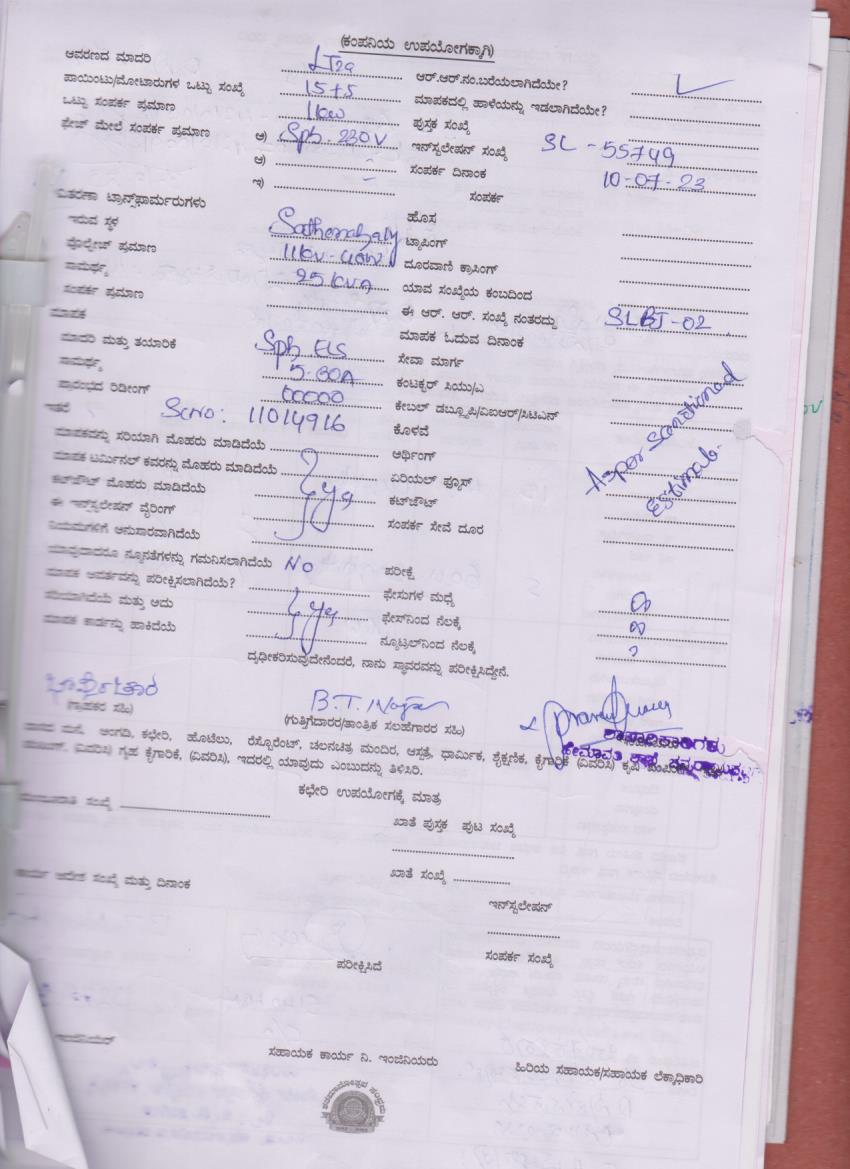 (ಕಂಪನಿಯ ಉಪಯೋಗಕ್ಕಾಗಿ)
ಆವರಣದ ಮಾದರಿ LT2a ಆರ್.ಆರ್.ನಂ.ಬರೆಯಲಾಗಿದೆಯೇ?
ಪಾಯಿಂಟು/ಮೋಟಾರುಗಳ ಒಟ್ಟು ಸಂಖ್ಯೆ 15+5 ಮಾಪಕದಲ್ಲಿ ಹಾಳೆಯನ್ನು ಇಡಲಾಗಿದೆಯೇ?
ಒಟ್ಟು ಸಂಪರ್ಕ ಪ್ರಮಾಣ 1kw ಪುಸ್ತಕ ಸಂಖ್ಯೆ
ಫೇಜ್ ಮೇಲೆ ಸಂಪರ್ಕ ಪ್ರಮಾಣ ಅ) Sph. 230V ಇನ್‌ಸ್ಟಲೇಷನ್ ಸಂಖ್ಯೆ SL-55749
ಆ) ಸಂಪರ್ಕ ದಿನಾಂಕ 10-07-23
ಇ) ಸಂಪರ್ಕ
ವಿತರಣಾ ಟ್ರಾನ್ಸ್‌ಫಾರ್ಮರುಗಳು ಹೊಸ
ಇರುವ ಸ್ಥಳ ಟ್ಯಾಪಿಂಗ್
ವೋಲ್ಟೇಜ್ ಪ್ರಮಾಣ ದೂರವಾಣಿ ಕ್ರಾಸಿಂಗ್
ಸಾಮರ್ಥ್ಯ 25 KVA ಯಾವ ಸಂಖ್ಯೆಯ ಕಂಬದಿಂದ
ಸಂಪರ್ಕ ಪ್ರಮಾಣ ಈ ಆರ್. ಆರ್. ಸಂಖ್ಯೆ ನಂತರದ್ದು SLBJ-02
ಮಾಪಕ ಮಾಪಕ ಓದುವ ದಿನಾಂಕ
ಮಾದರಿ ಮತ್ತು ತಯಾರಿಕೆ Sph ELS ಸೇವಾ ಮಾರ್ಗ
ಸಾಮರ್ಥ್ಯ 5-30A ಕಂಟಕ್ಟರ್ ಸಿಯು/ಎ
ಪ್ರಾರಂಭದ ರಿಡೀಂಗ್ 00000 ಕೇಬಲ್ ಡಬ್ಲ್ಯೂಪಿ/ಎಐಆರ್/ಸಿಟಿಎಸ್
ಇತರೆ Sc.no: 11014916 ಕೊಳವೆ
ಮಾಪಕವನ್ನು ಸರಿಯಾಗಿ ಮೊಹರು ಮಾಡಿದೆಯೆ ಅರ್ಥಿಂಗ್
ಮಾಪಕ ಟರ್ಮಿನಲ್ ಕವರನ್ನು ಮೊಹರು ಮಾಡಿದೆಯೆ ಏರಿಯಲ್ ಫ್ಯೂಸ್
ಕಟ್‌ಔಟ್ ಮೊಹರು ಮಾಡಿದೆಯೆ ಕಟ್‌ಔಟ್
ಈ ಇನ್‌ಸ್ಟಲೇಷನ್ ವೈರಿಂಗ್ ಸಂಪರ್ಕ ಸೇವೆ ದೂರ
ನಿಯಮಗಳಿಗೆ ಅನುಸಾರವಾಗಿದೆಯೆ
As per Sanctioned
Estimate.
ಯಾವುದಾದರೂ ನ್ಯೂನತೆಗಳನ್ನು ಗಮನಿಸಲಾಗಿದೆಯೆ NO ಪರೀಕ್ಷೆ
ಮಾಪಕ ಆವರ್ತವನ್ನು ಪರೀಕ್ಷಿಸಲಾಗಿದೆಯೆ? ಫೇಸುಗಳ ಮಧ್ಯೆ
ಸರಿಯಾಗಿದೆಯೆ ಮತ್ತು ಅದು ಫೇಸ್‌ನಿಂದ ನೆಲಕ್ಕೆ
ಮಾಪಕ ಕಾರ್ಡನ್ನು ಹಾಕಿದೆಯೆ ನ್ಯೂಟ್ರಲ್‌ನಿಂದ ನೆಲಕ್ಕೆ
ದೃಢೀಕರಿಸುವುದೇನೆಂದರೆ, ನಾನು ಸ್ಥಾವರವನ್ನು ಪರೀಕ್ಷಿಸಿದ್ದೇನೆ.
(ಗ್ರಾಹಕರ ಸಹಿ) (ಗುತ್ತಿಗೆದಾರರ/ತಾಂತ್ರಿಕ ಸಲಹೆಗಾರರ ಸಹಿ)
ಮನೆ, ಅಂಗಡಿ, ಕಛೇರಿ, ಹೊಟೆಲು, ರೆಸ್ಟೋರೆಂಟ್, ಚಲನಚಿತ್ರ ಮಂದಿರ, ಆಸ್ಪತ್ರೆ, ಧಾರ್ಮಿಕ, ಶೈಕ್ಷಣಿಕ, ಕೈಗಾರಿಕೆ (ವಿವರಿಸಿ) ಕೃಷಿ
(ವಿವರಿಸಿ) ಗೃಹ ಕೈಗಾರಿಕೆ, (ವಿವರಿಸಿ), ಇದರಲ್ಲಿ ಯಾವುದು ಎಂಬುದನ್ನು ತಿಳಿಸಿರಿ.
ಕಛೇರಿ ಉಪಯೋಗಕ್ಕೆ ಮಾತ್ರ
ಸಂಖ್ಯೆ ಖಾತೆ ಪುಸ್ತಕ ಪುಟ ಸಂಖ್ಯೆ
ಖಾತೆ ಸಂಖ್ಯೆ
ಆದೇಶ ಸಂಖ್ಯೆ ಮತ್ತು ದಿನಾಂಕ
ಇನ್‌ಸ್ಟಲೇಷನ್
ಪರೀಕ್ಷಿಸಿದೆ ಸಂಪರ್ಕ ಸಂಖ್ಯೆ
ಸಹಾಯಕ ಕಾರ್ಯ ನಿ. ಇಂಜಿನಿಯರು ಹಿರಿಯ ಸಹಾಯಕ/ಸಹಾಯಕ ಲೆಕ್ಕಾಧಿಕಾರಿ